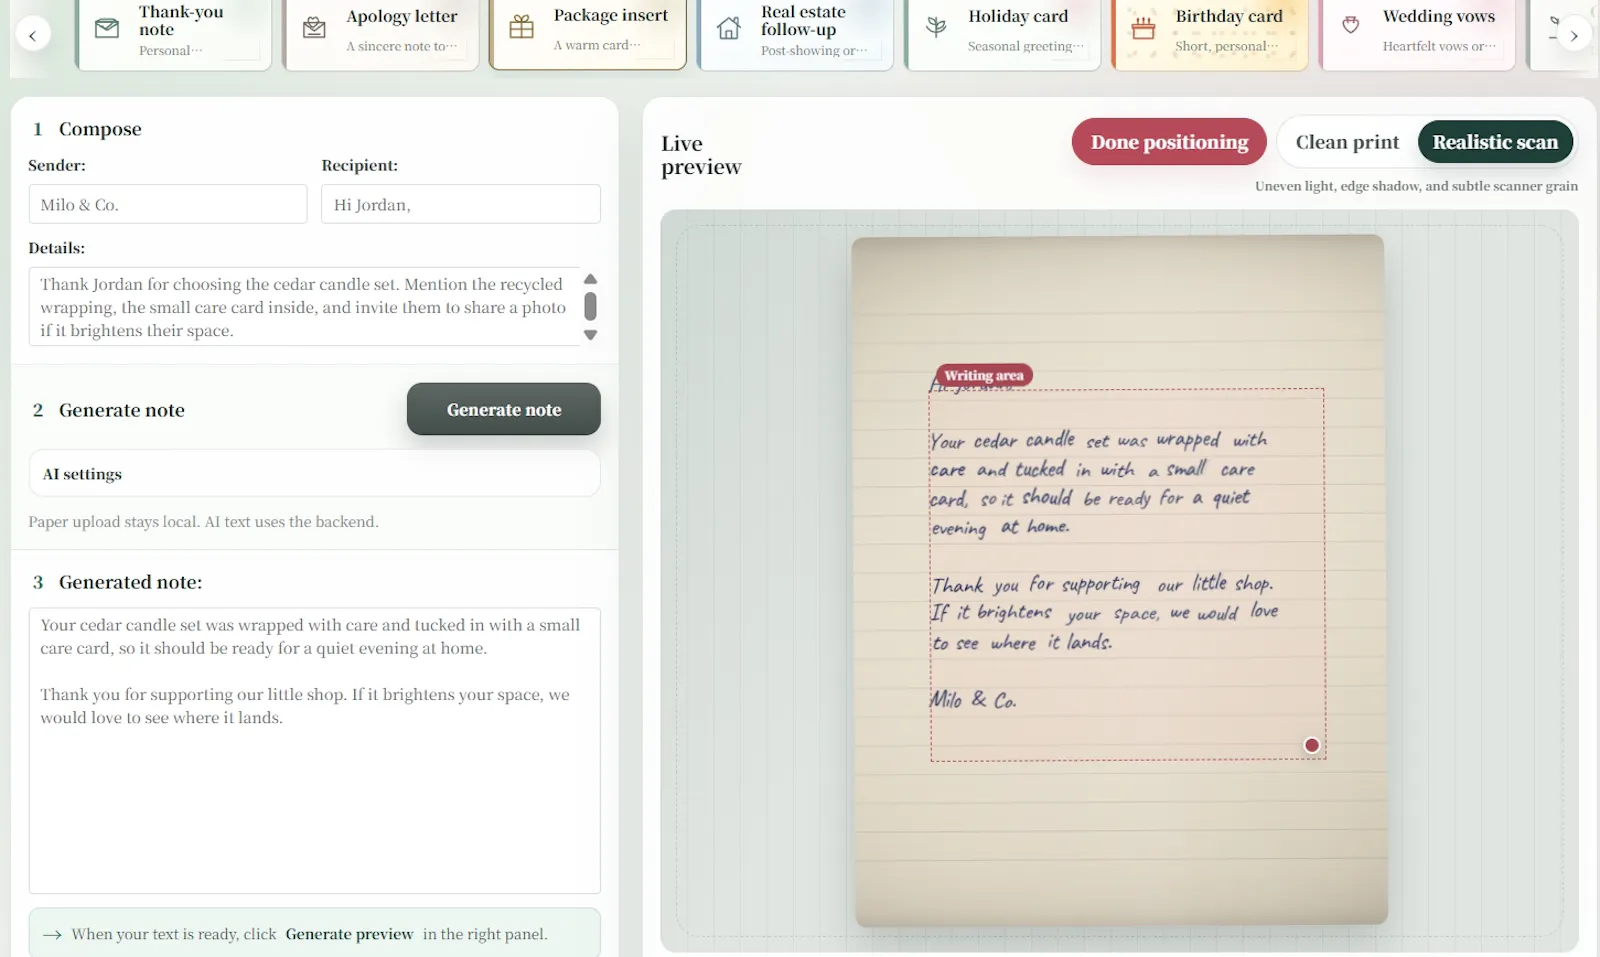 Thank-you
note
Personal···
Apology letter
A sincere note to···
Package insert
A warm card···
Real estate
follow-up
Post-showing or···
Holiday card
Seasonal greeting···
Birthday card
Short, personal···
Wedding vows
Heartfelt vows or···
1 Compose
Sender:
Recipient:
Milo & Co.
Hi Jordan,
Details:
Thank Jordan for choosing the cedar candle set. Mention the recycled
wrapping, the small care card inside, and invite them to share a photo
if it brightens their space.
2 Generate note
Generate note
AI settings
Paper upload stays local. AI text uses the backend.
3 Generated note:
Your cedar candle set was wrapped with care and tucked in with a small
care card, so it should be ready for a quiet evening at home.
Thank you for supporting our little shop. If it brightens your space, we
would love to see where it lands.
→ When your text is ready, click Generate preview in the right panel.
Live
preview
Done positioning
Clean print
Realistic scan
Uneven light, edge shadow, and subtle scanner grain
Writing area
Your cedar candle set was wrapped with
care and tucked in with a small care
card, so it should be ready for a quiet
evening at home.
Thank you for supporting our little shop.
If it brightens your space, we would love
to see where it lands.
Milo & Co.